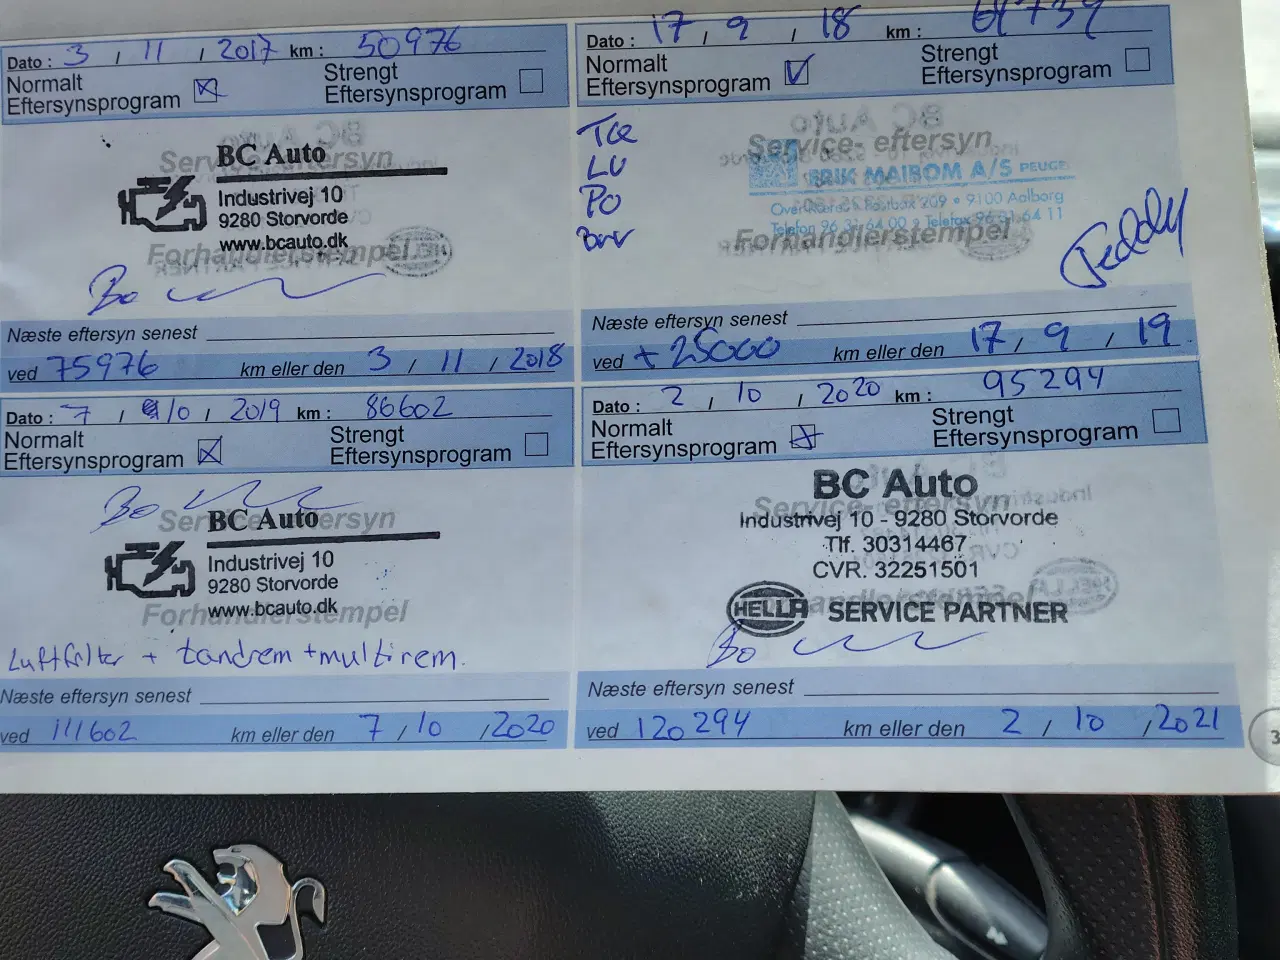 Dato : 3 / 11 / 2017 km : 50976
Normalt
Eftersynsprogram
Strengt
Eftersynsprogram
Service-eftersyn
BC Auto
Industrivej 10
9280 Storvorde
www.bcauto.dk
Forhandlerstempel
Bo
Næste eftersyn senest
ved 75976 km eller den 3 / 11 / 2018
Dato : 17 / 9 / 18 km :
Normalt
Eftersynsprogram
Strengt
Eftersynsprogram
LU
PO
Service- eftersyn
ERIK MAIBOM A/S PEUGE
9100 Aalborg
Forhandlerstempel
Teddy
Næste eftersyn senest
ved + 25000 km eller den 17 / 9 / 19
Dato : 7 / 10 / 2019 km : 86602
Normalt
Eftersynsprogram
Strengt
Eftersynsprogram
Bo
Service-eftersyn
BC Auto
Industrivej 10
9280 Storvorde
www.bcauto.dk
Forhandlerstempel
Luftfilter + tandrem + multirem.
Næste eftersyn senest
ved 111602 km eller den 7 / 10 / 2020
Dato : 2 / 10 / 2020 km : 95294
Normalt
Eftersynsprogram
Strengt
Eftersynsprogram
BC Auto
Service- eftersyn
Industrivej 10 - 9280 Storvorde
Tlf. 30314467
CVR. 32251501
Forhandlerstempel
HELLA SERVICE PARTNER
Bo
Næste eftersyn senest
ved 120294 km eller den 2 / 10 / 2021
3